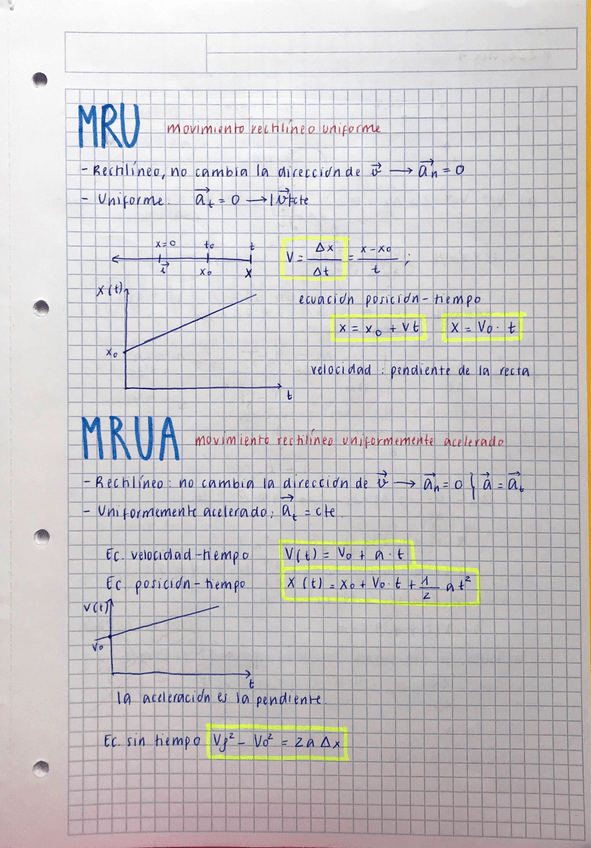 MRU movimiento rectilíneo uniforme
- Rectilíneo, no cambia la dirección de v⃗ → a⃗ₙ = 0
- Uniforme. a⃗ₜ = 0 → |v⃗|=cte
x=0 t₀ t
i⃗ x₀ x
V = Δx/Δt = x-x₀/t ;
x(t)
ecuación posición-tiempo
x = x₀ + vt x = V₀ · t
x₀
velocidad : pendiente de la recta
t
MRUA movimiento rectilíneo uniformemente acelerado
- Rectilíneo: no cambia la dirección de v⃗ → a⃗ₙ = 0 } a⃗ = a⃗ₜ
- Uniformemente acelerado: a⃗ₜ = cte.
Ec. velocidad-tiempo V(t) = V₀ + a · t
Ec posición-tiempo x (t) = x₀ + V₀ · t + 1/2 at²
V(t)
V₀
t
la aceleración es la pendiente.
Ec. sin tiempo Vf² - V₀² = 2a Δx